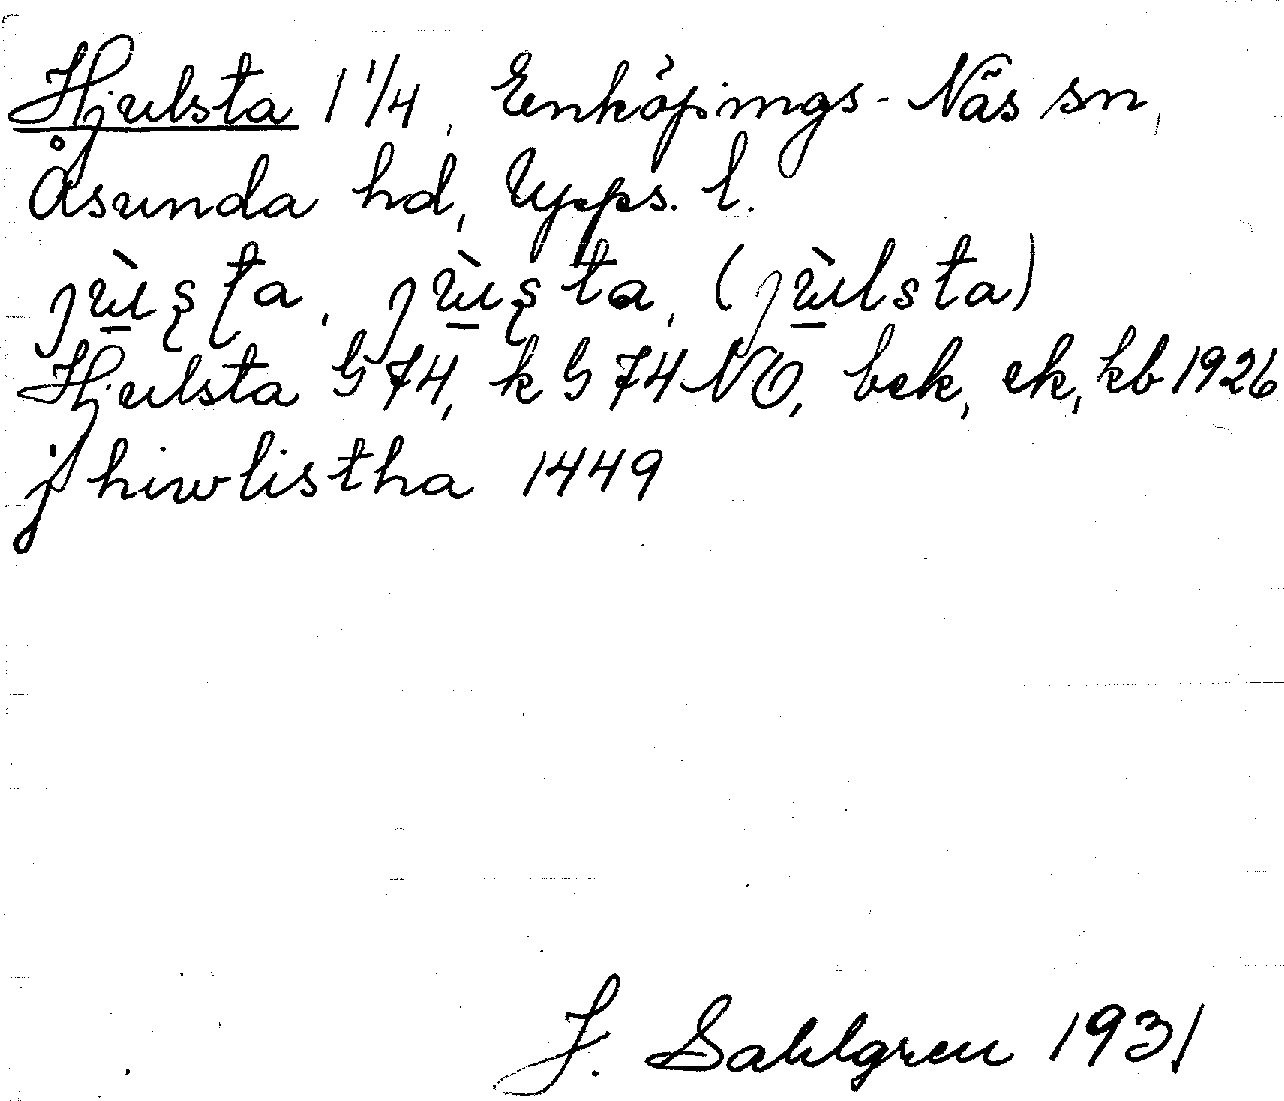 Hjulsta 1 1/4, Enköpings-Näs sn,
Åsunda hd, Upps. l.
jùs̨ţa, jùs̨ta, (jùlsta)
Hjulsta G 74, k G 74 NO, bek, ek, kb 1926
j hiwlistha 1449
J. Sahlgren 1931